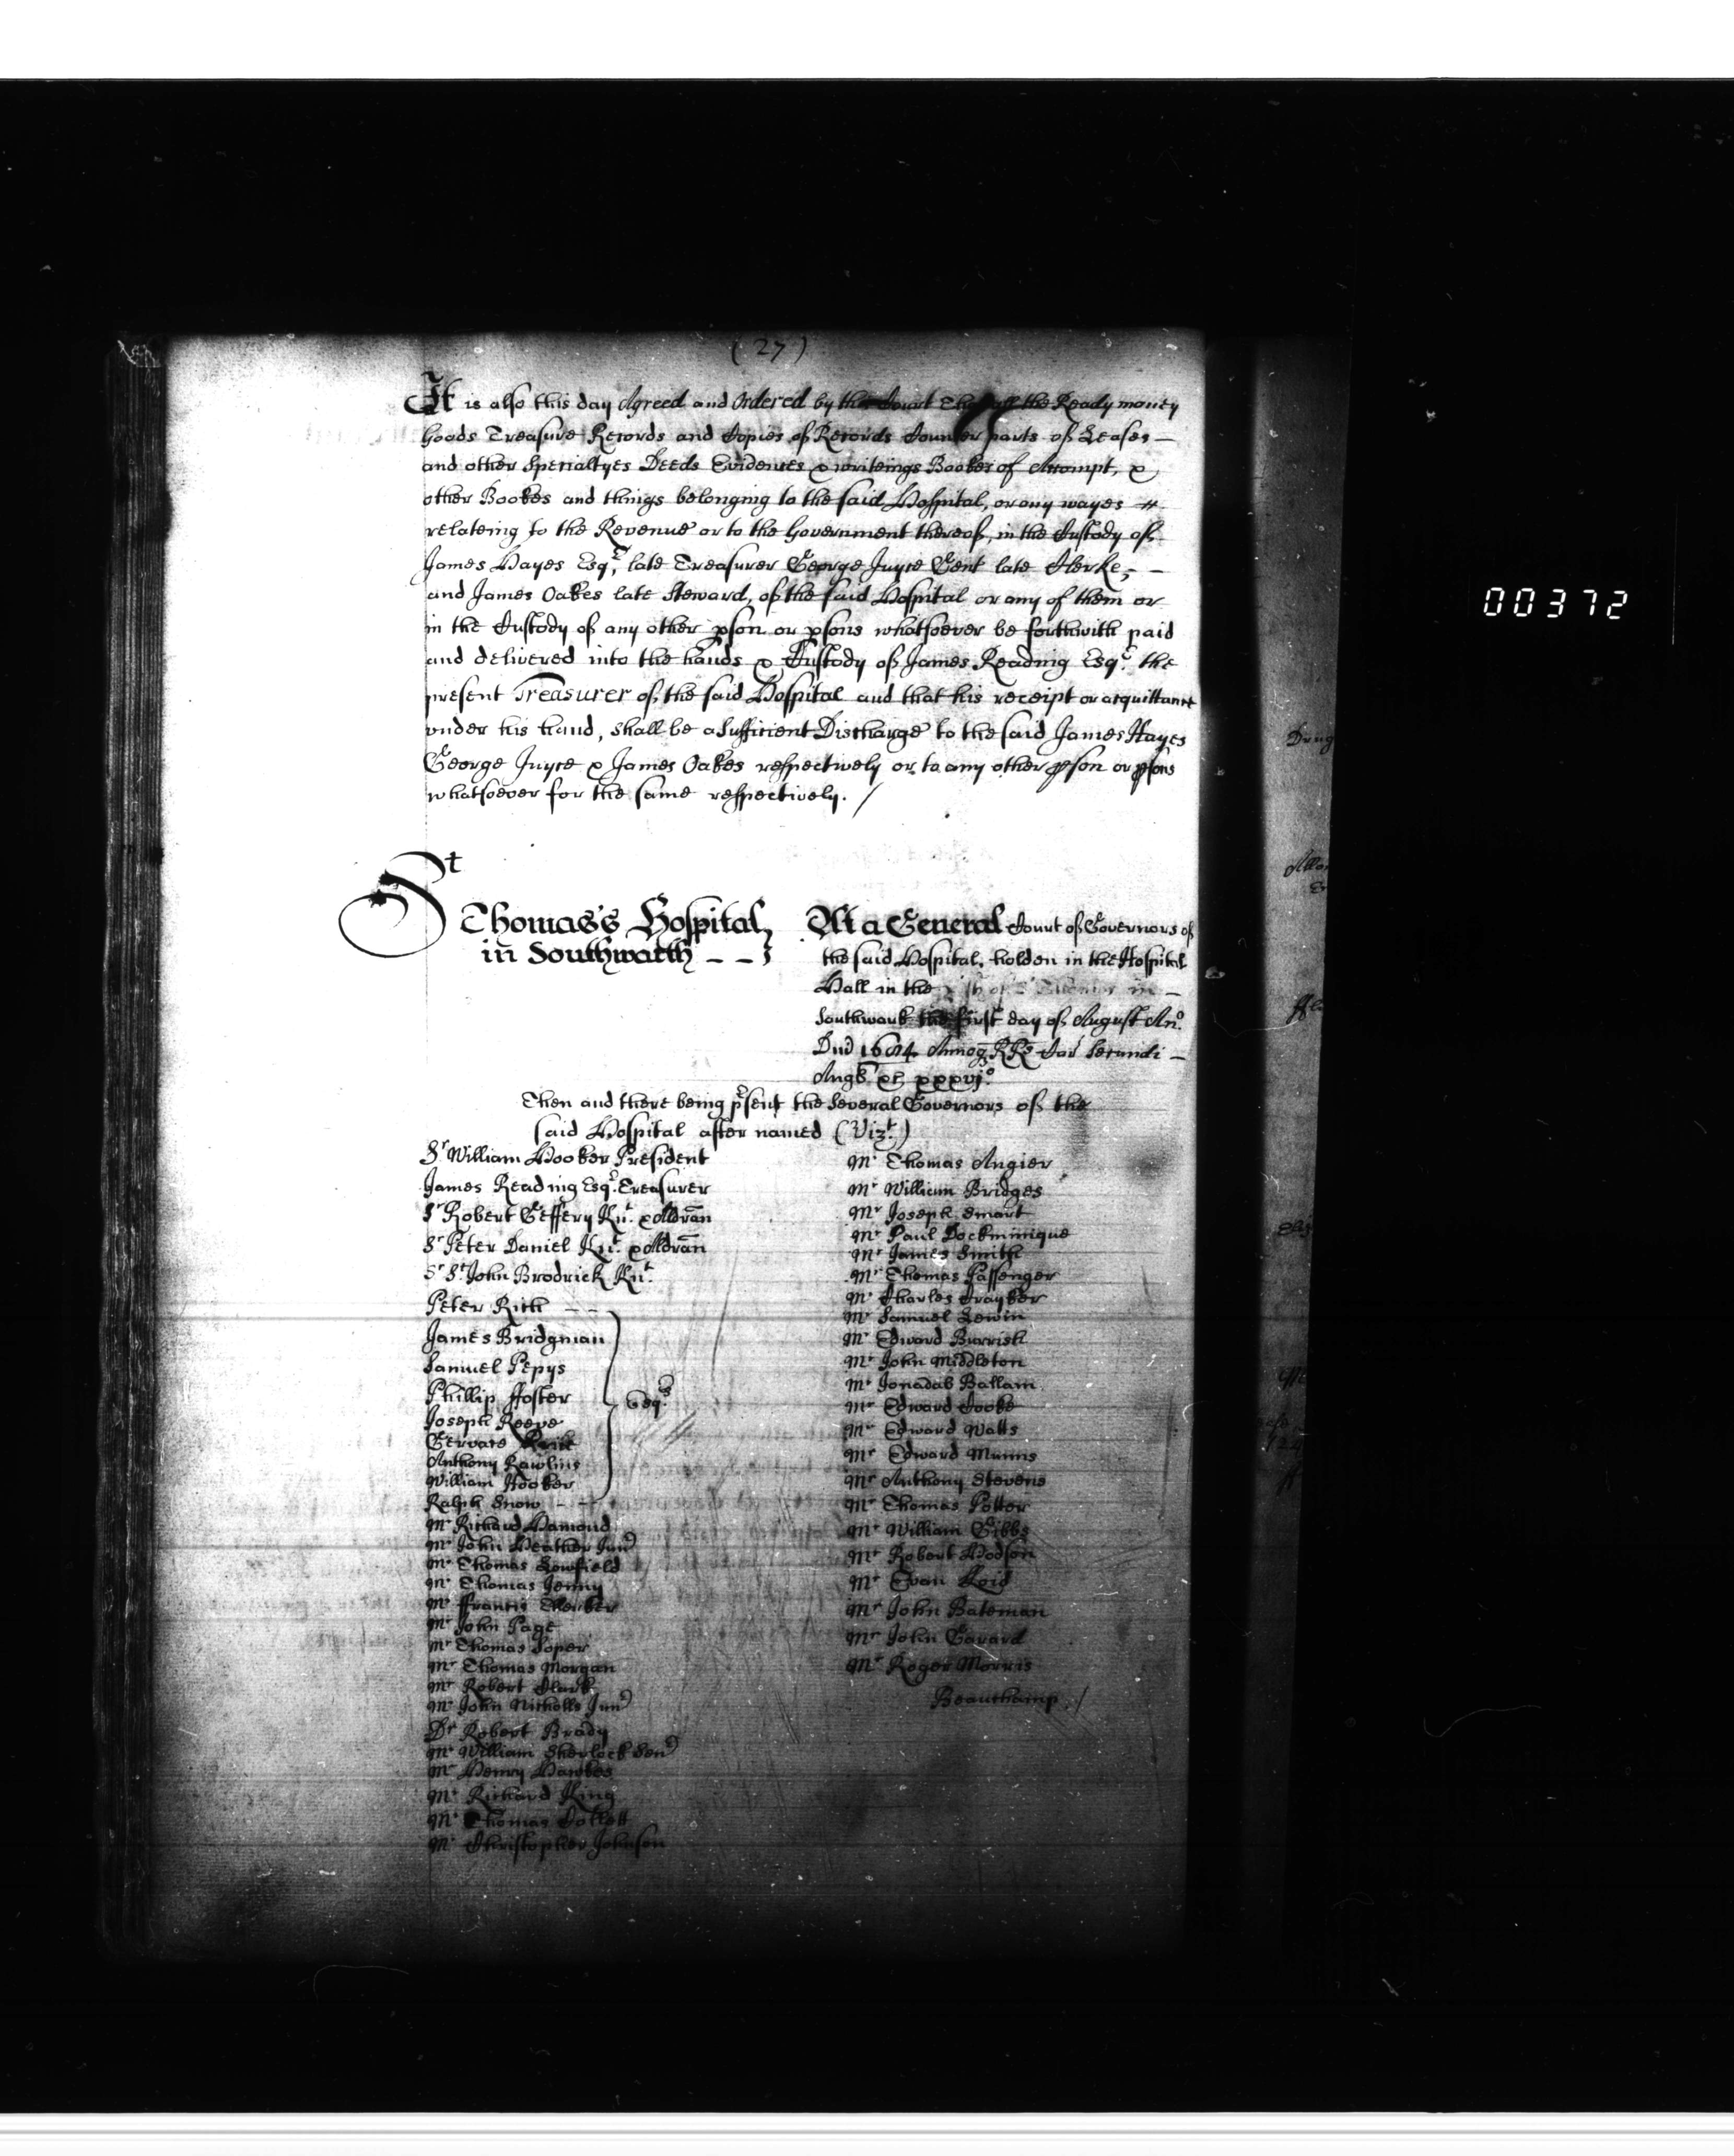 ( 27 )
It is also this day Agreed and Ordered by this Court That all the Ready money
Goods Treasure Records and Copies of Records Counter parts of Leases —
and other Specialtyes Deeds Evidences & writeings Bookes of Accompt, &
other Bookes and things belonging to the said Hospital, or any wayes
relateing to the Revenue or to the Government thereof, in the Custody of
James Hayes Esqr, late Treasurer George Juyce Gent late Clerke, —
and James Oakes late Steward, of the said Hospital or any of them or
in the Custody of any other pson or psons whatsoever be forthwith paid
and delivered into the hands & Custody of James Reading Esqr. the
present Treasurer of the said Hospital and that his receipt or acquittance
under his hand, shall be a Sufficient Discharge to the said James Hayes
George Juyce & James Oakes respectively or to any other pson or psons
whatsoever for the same respectively. /
St
Thomas's Hospital,
in Southwark - -
At a General Court of Governors of
the said Hospital, holden in the Hospital
Hall in the
Southwark the First day of August Ano.
Dnd 1684 Annoq RRs Car Secundi —
Angt &c xxxvjo
Then and there being psent the Several Governors of the
said Hospital after named (Vizt.)
Sr William Hooker President
James Reading Esqr. Treasurer
Sr Robert Geffery Knt. & Aldran
Sr Peter Daniel Knt. & Aldran
Sr St. John Brodrick Knt.
Peter Rich - -
James Bridgman
Samuel Pepys
Phillip ffoster
Joseph Reeve
Gervase
Anthony Rawlins
William Hooker
Ralph Snow - -
Esqs
Mr Richard Hamond
Mr John Heather Junr
Mr Thomas Lowfield
Mr Thomas Jenny
Mr ffrancis
Mr John Page
Mr Thomas Soper
Mr Thomas Morgan
Mr Robert Clark
Mr John Nicholls Junr
Dr Robert Brady
Mr William Sherlock Senr
Mr Henry Hawkes
Mr Richard King
Mr Thomas Collett
Mr Christopher Johnson
Mr Thomas Angier
Mr William Bridges
Mr Joseph Smart
Mr Paul Dockminique
Mr James Smith
Mr Thomas Passenger
Mr Charles Crayker
Mr Samuel Lewin
Mr Edward Burrish
Mr John Middleton
Mr Jonadab Ballam
Mr Edward Cooke
Mr Edward Watts
Mr Edward Munns
Mr Anthony Stevens
Mr Thomas Potter
Mr William Gibbs
Mr Robert Hodson
Mr Evan Loid
Mr John Bateman
Mr John Garard
Mr Roger Morris
Beauchamp. /
00372